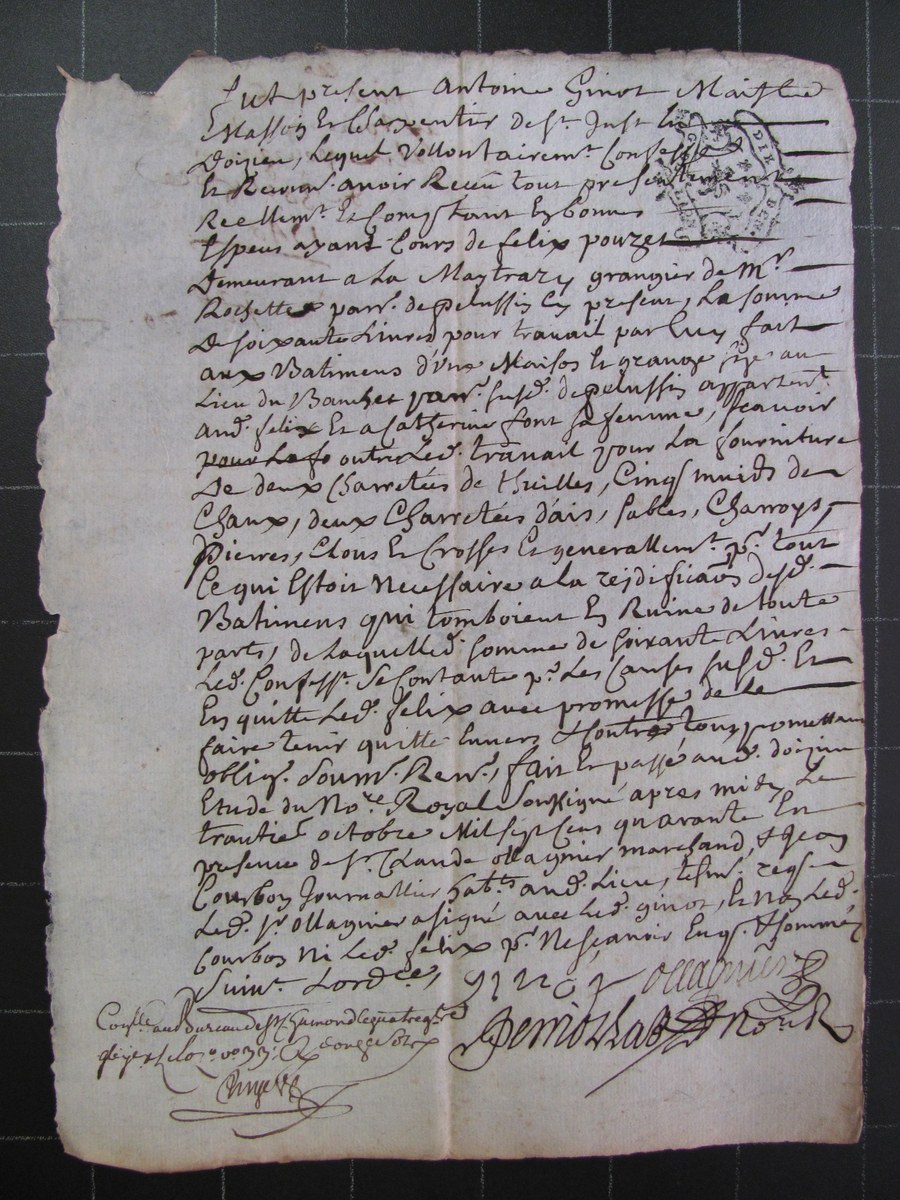 Fut present Antoine Ginot Maistre
Masson Et Charpentier de St. Just Les
Doizieu, Lequel Vollontairemt. Confesse
Et Reconn. avoir Receu tout presentement
Reellemt. Et Comptant En bonnes
Especes ayant Cours de felix pouzet
Demeurant a La grangier de Mr.
Rochette parr. de pelussin Cy present, La somme
De soixante Livres pour travail par Luy fait
aux Batimens d'Une Maison Et grange size au
Lieu du Banchet parr. susd. de pelussin appartent.
aud. felix Et a Catherine font sa femme, scavoir
pour La fo outre Led. travail pour La fourniture
De deux Charretées de thuilles, Cinq muids de
Chaux, deux Charretées d'ais, sables, Charroys,
Pierres, Clous Et Crosses Et generallemt. pr. tout
Ce qui Estoit Necessaire a la reidificaon desd.
Batimens qui tomboient En Ruine de toute
parts, de Laquelle d. somme de soixante Livres
Led. Confesst. se Contante pr. Les Causes susd. Et
En quitte Led. felix avec promesse de le
faire tenir quitte Envers & Contre tous, promettant
oblig. soum. Ren., fait Et passé aud. doizieu
Etude du Nore. Royal soussigné apres midy Le
trantie. octobre Mil sept Cens quarante En
presence de sr. Claude ollagnier marchand, & Jean
Courbon Journallier habts. aud. Lieu, tesm. reqs.
Led. sr. ollagnier a signé avec Led. ginot, Et Non Led.
Courbon ni Led. felix pr. Ne scavoir Enqs. & sommés
suivt. Lordce,
ginot ollagnier
Conllé. au Bureau de St. Chamond Le quatre